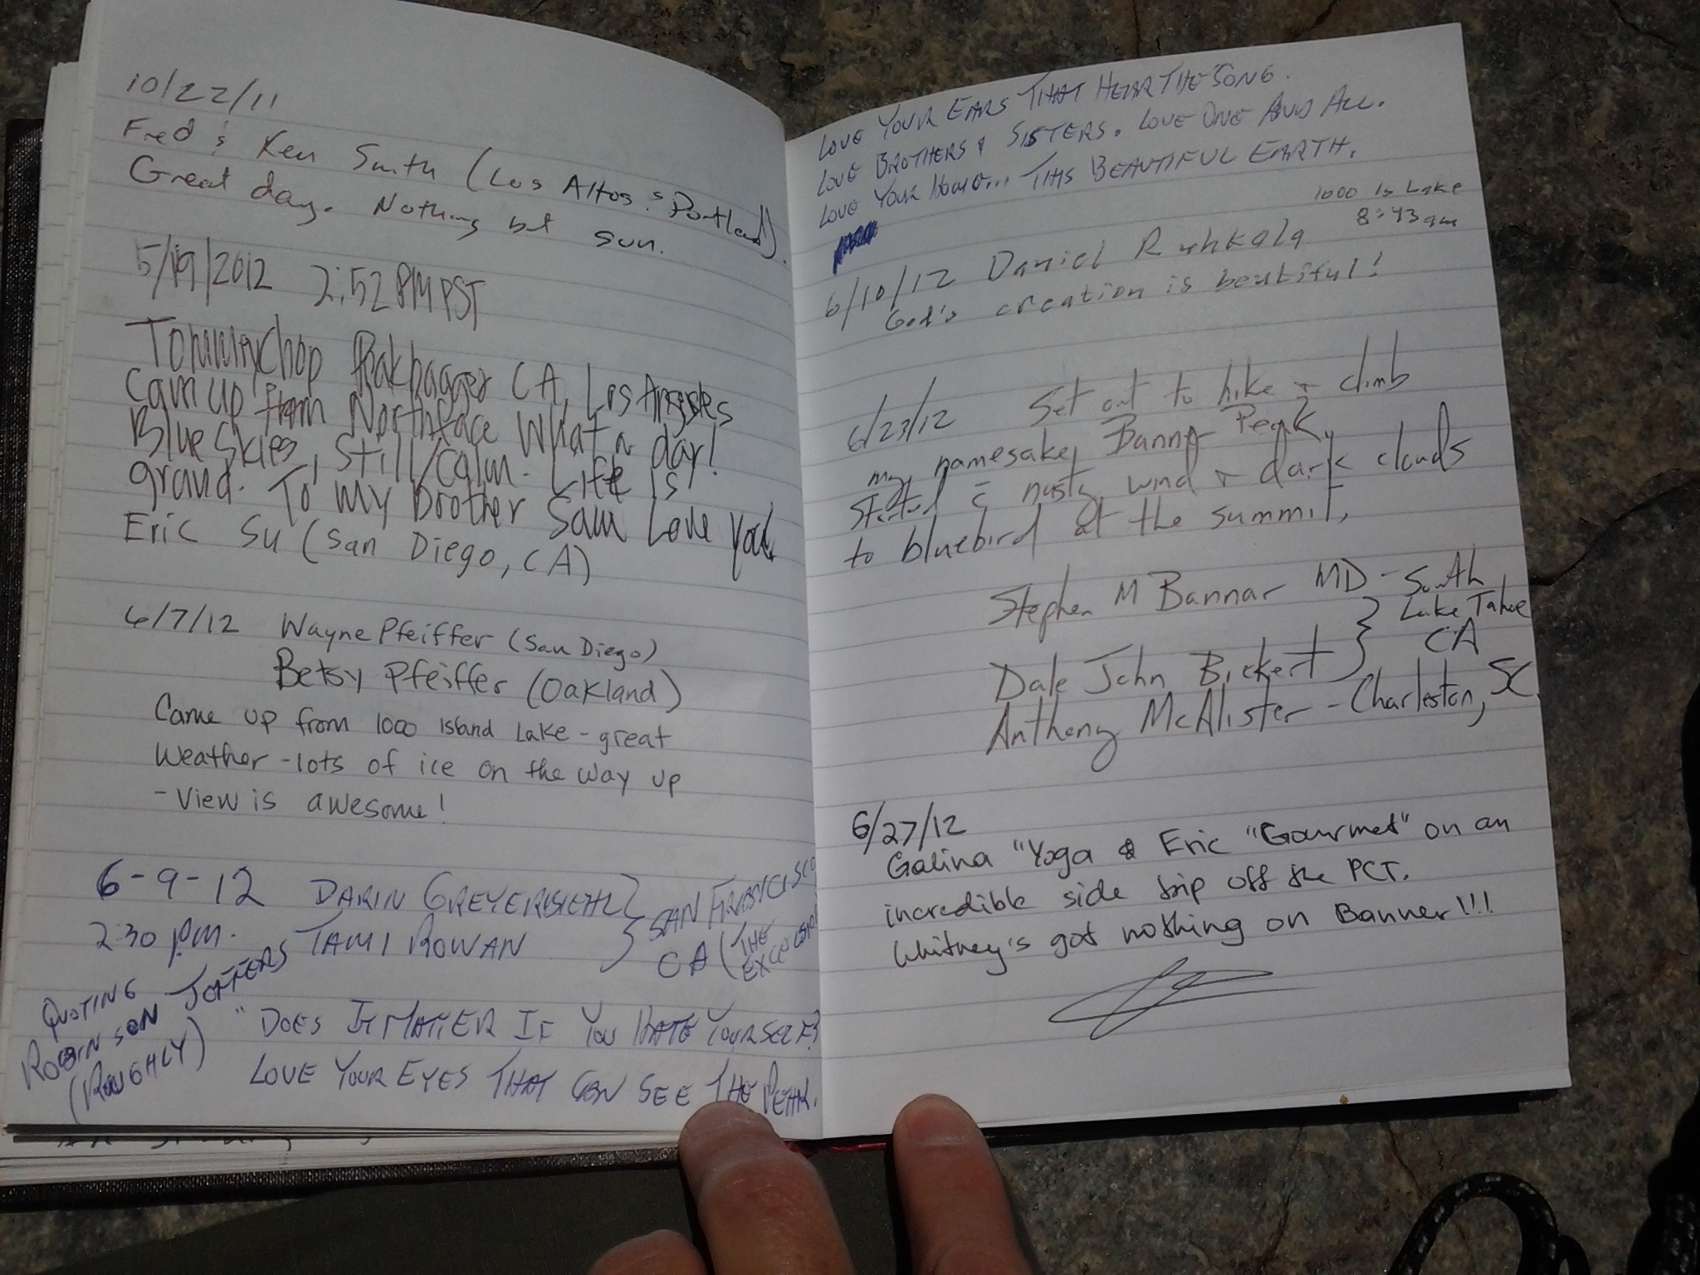 10/22/11
Fred & Ken Smith (Los Altos & Portland)
Great day. Nothing but sun.
5/19/2012 2:52 PM PST
Tommychop Peakbagger CA, Los Angeles
cam up from Northface What a day!
Blue skies, still/calm. Life is
grand. To my brother Sam Love you
Eric Su (San Diego, CA)
6/7/12 Wayne Pfeiffer (San Diego)
Betsy Pfeiffer (Oakland)
Came up from 1000 Island Lake - great
weather - lots of ice on the way up
- view is awesome!
6-9-12 DARIN
2:30 PM. TAMI ROWAN
SAN FRANCISCO
CA (THE
QUOTING
ROBINSON JEFFERS
(ROUGHLY)
"DOES IT MATTER IF YOU HATE YOURSELF?
LOVE YOUR EYES THAT CAN SEE THE PEAK.
LOVE YOUR EARS THAT HEAR THE SONG.
LOVE BROTHERS & SISTERS. LOVE ONE AND ALL.
LOVE YOUR HOME... THIS BEAUTIFUL EARTH.
1000 Is Lake
8:43am
6/10/12 Daniel Ruhkala
God's creation is beutiful!
6/23/12 Set out to hike & climb
my namesake, Banner Peak,
Started c̄ nasty wind & dark clouds
to bluebird at the summit,
Stephen M Bannar MD - South
Lake Tahoe
CA
Dale John Bickert
Anthony McAlister - Charleston, SC.
6/27/12
Galina "Yoga & Eric "Gourmet" on an
incredible side trip off the PCT.
Whitney's got nothing on Banner!!!